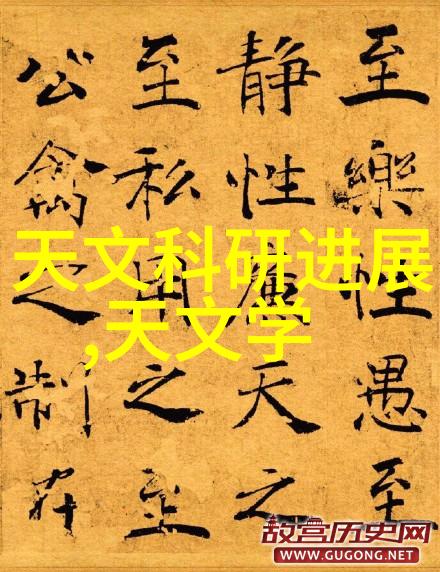 至樂性愚至
静性廉天之
至私用之至
公禽之制在
天文科研进展
,天文学
故宫历史网
WWW.GUGONG.NET